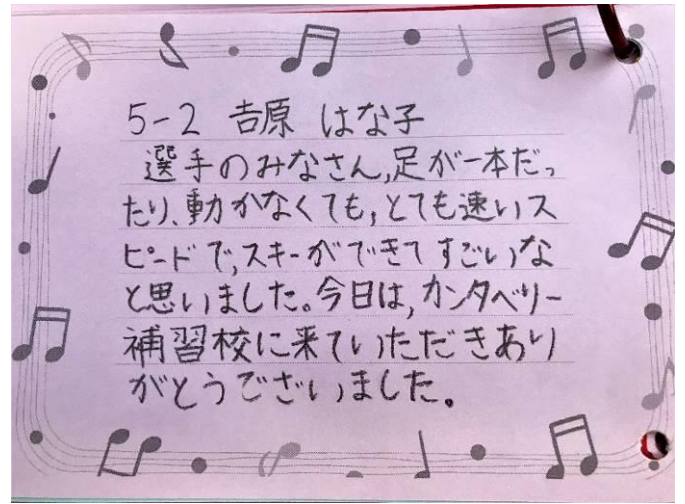 5-2 吉原 はな子
選手のみなさん,足が一本だっ
たり、動かなくても,とても速いス
ピードで,スキーができてすごいな
と思いました。今日は,カンタベリー
補習校に来ていただきあり
がとうございました。